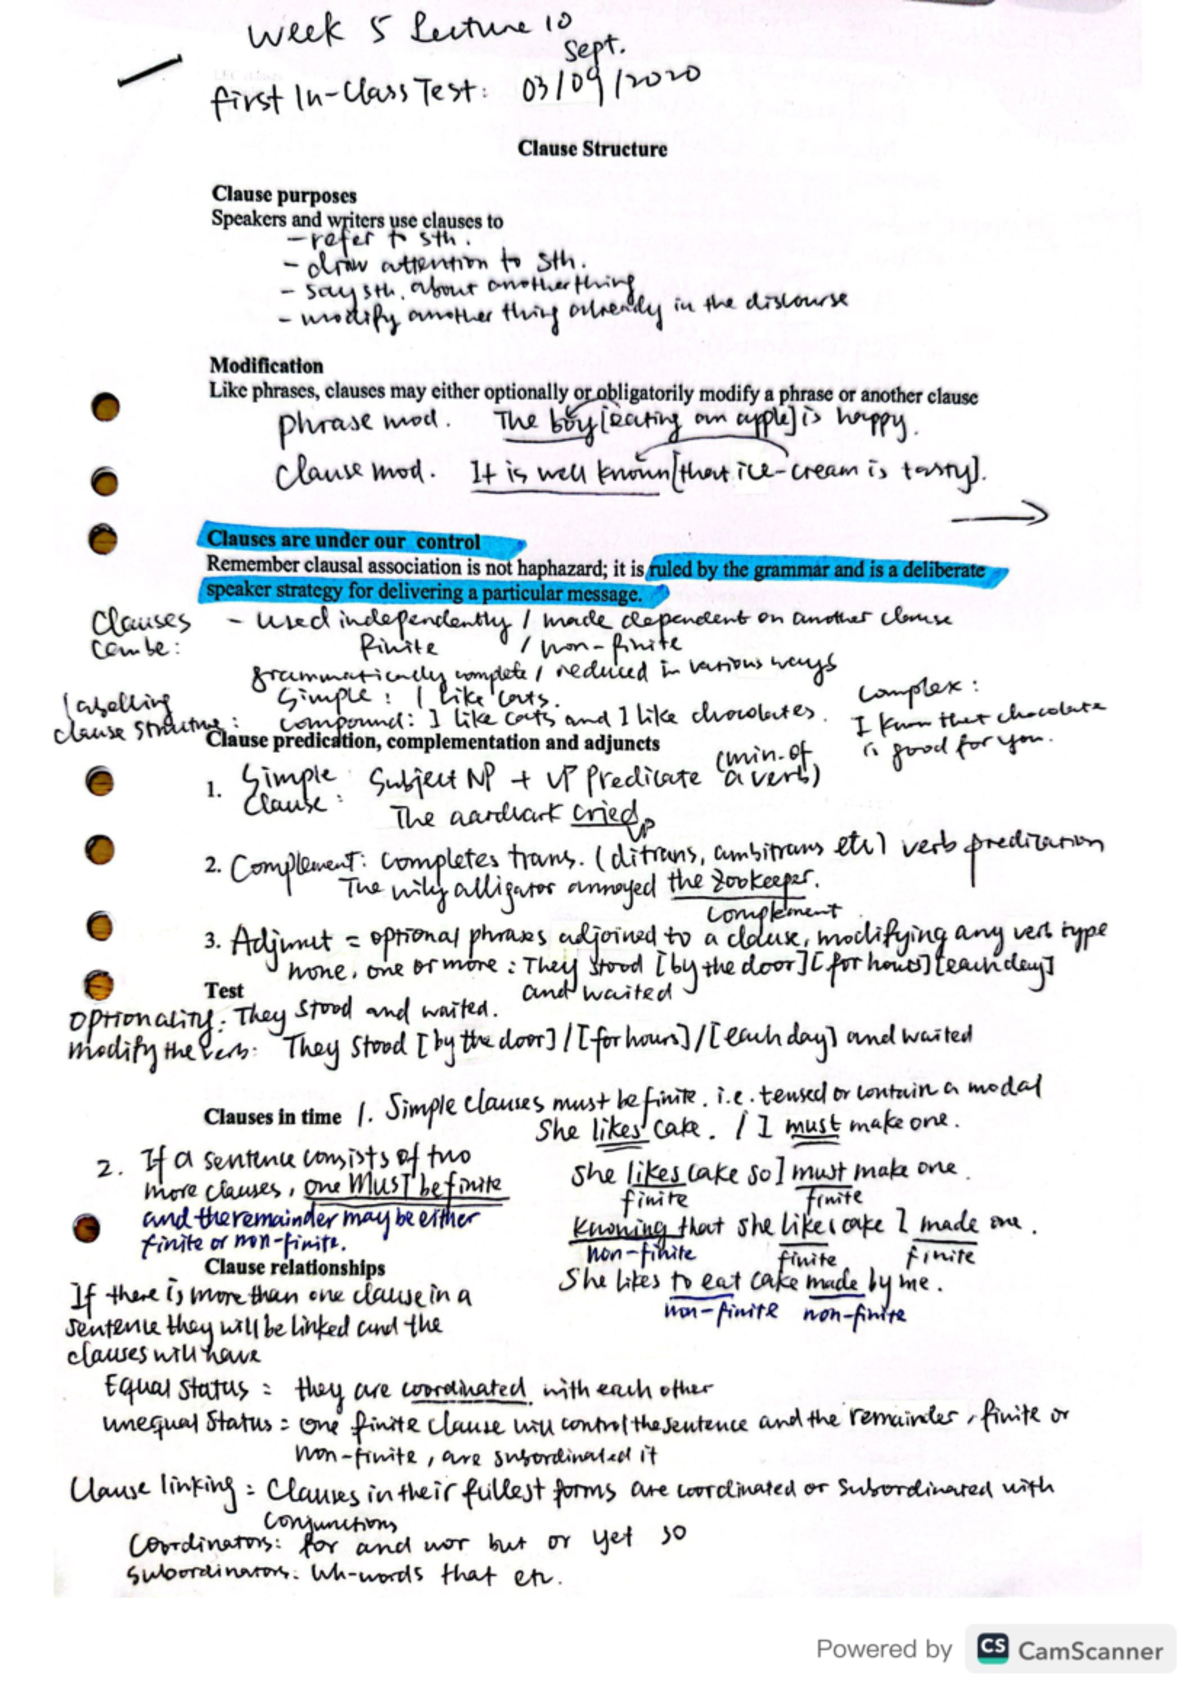 Week 5 Lecture 10
Sept.
First In-Class Test: 03/09/2020
Clause Structure
Clause purposes
Speakers and writers use clauses to
- refer to sth.
- draw attention to sth.
- say sth. about another thing
- modify another thing already in the discourse
Modification
Like phrases, clauses may either optionally or obligatorily modify a phrase or another clause
phrase mod. The boy [eating an apple] is happy.
Clause mod. It is well known [that ice-cream is tasty].
Clauses are under our control
Remember clausal association is not haphazard; it is ruled by the grammar and is a deliberate
speaker strategy for delivering a particular message.
Clauses can be: - used independently / made dependent on another clause
finite / non-finite
grammatically complete / reduced in various ways
labelling clause structure: Simple: I like cats.
compound: I like cats and I like chocolates.
Complex:
I know that chocolate
is good for you.
Clause predication, complementation and adjuncts
1. Simple Clause: Subject NP + VP Predicate (min. of a verb)
The aardvark cried
VP
2. Complement: completes trans. (ditrans, ambitrans etc) verb predication
The wily alligator annoyed the zookeeper.
Complement
3. Adjunct = optional phrases adjoined to a clause, modifying any verb type
none, one or more: They stood [by the door] [for hours] [each day]
and waited
Test
Optionality: They stood and waited.
modify the verb: They stood [by the door] / [for hours] / [each day] and waited
Clauses in time 1. Simple clauses must be finite. i.e. tensed or contain a modal
She likes cake. / I must make one.
2. If a sentence consists of two
more clauses, one MUST be finite
and the remainder may be either
finite or non-finite.
She likes cake so I must make one.
finite finite
Knowing that she likes cake I made one.
non-finite finite finite
She likes to eat cake made by me.
non-finite non-finite
Clause relationships
If there is more than one clause in a
sentence they will be linked and the
clauses will have
Equal status = they are coordinated with each other
unequal status = one finite clause will control the sentence and the remainder, finite or
non-finite, are subordinated it
Clause linking: Clauses in their fullest forms are coordinated or subordinated with
conjunctions
Coordinators: for and nor but or yet so
Subordinators: Wh-words that etc.
Powered by CS CamScanner